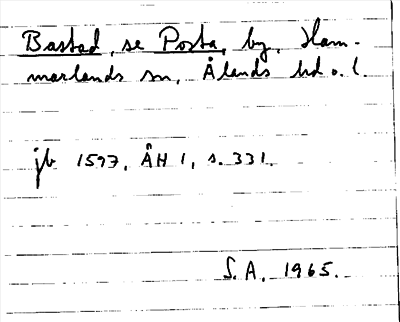 Bastad, se Posta, by, Ham-
marlands sn, Ålands hd o. l.
jb 1597, ÅH 1, s. 331.
S. A. 1965.